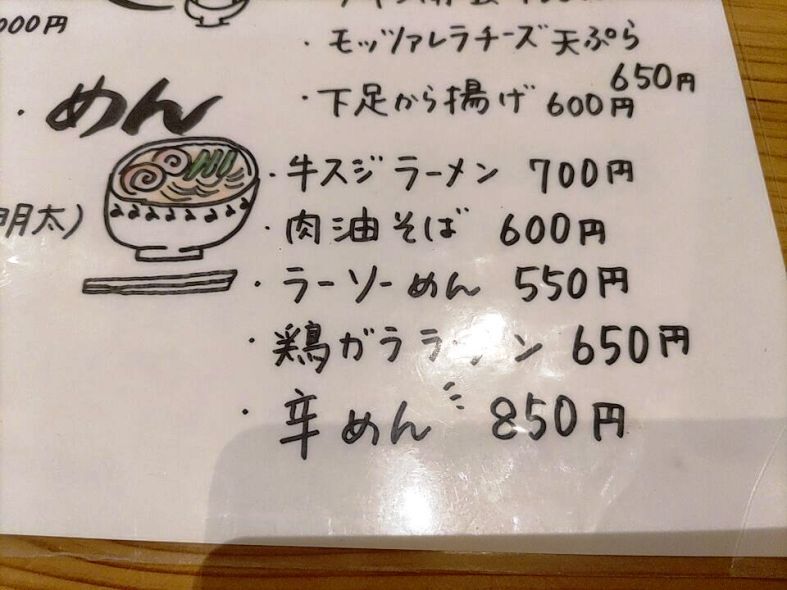 000円
・モッツァレラチーズ天ぷら
650円
・下足から揚げ 600円
・めん
・牛スジラーメン 700円
明太)
・肉油そば 600円
・ラーソーめん 550円
・鶏ガララーメン 650円
・辛めん 850円